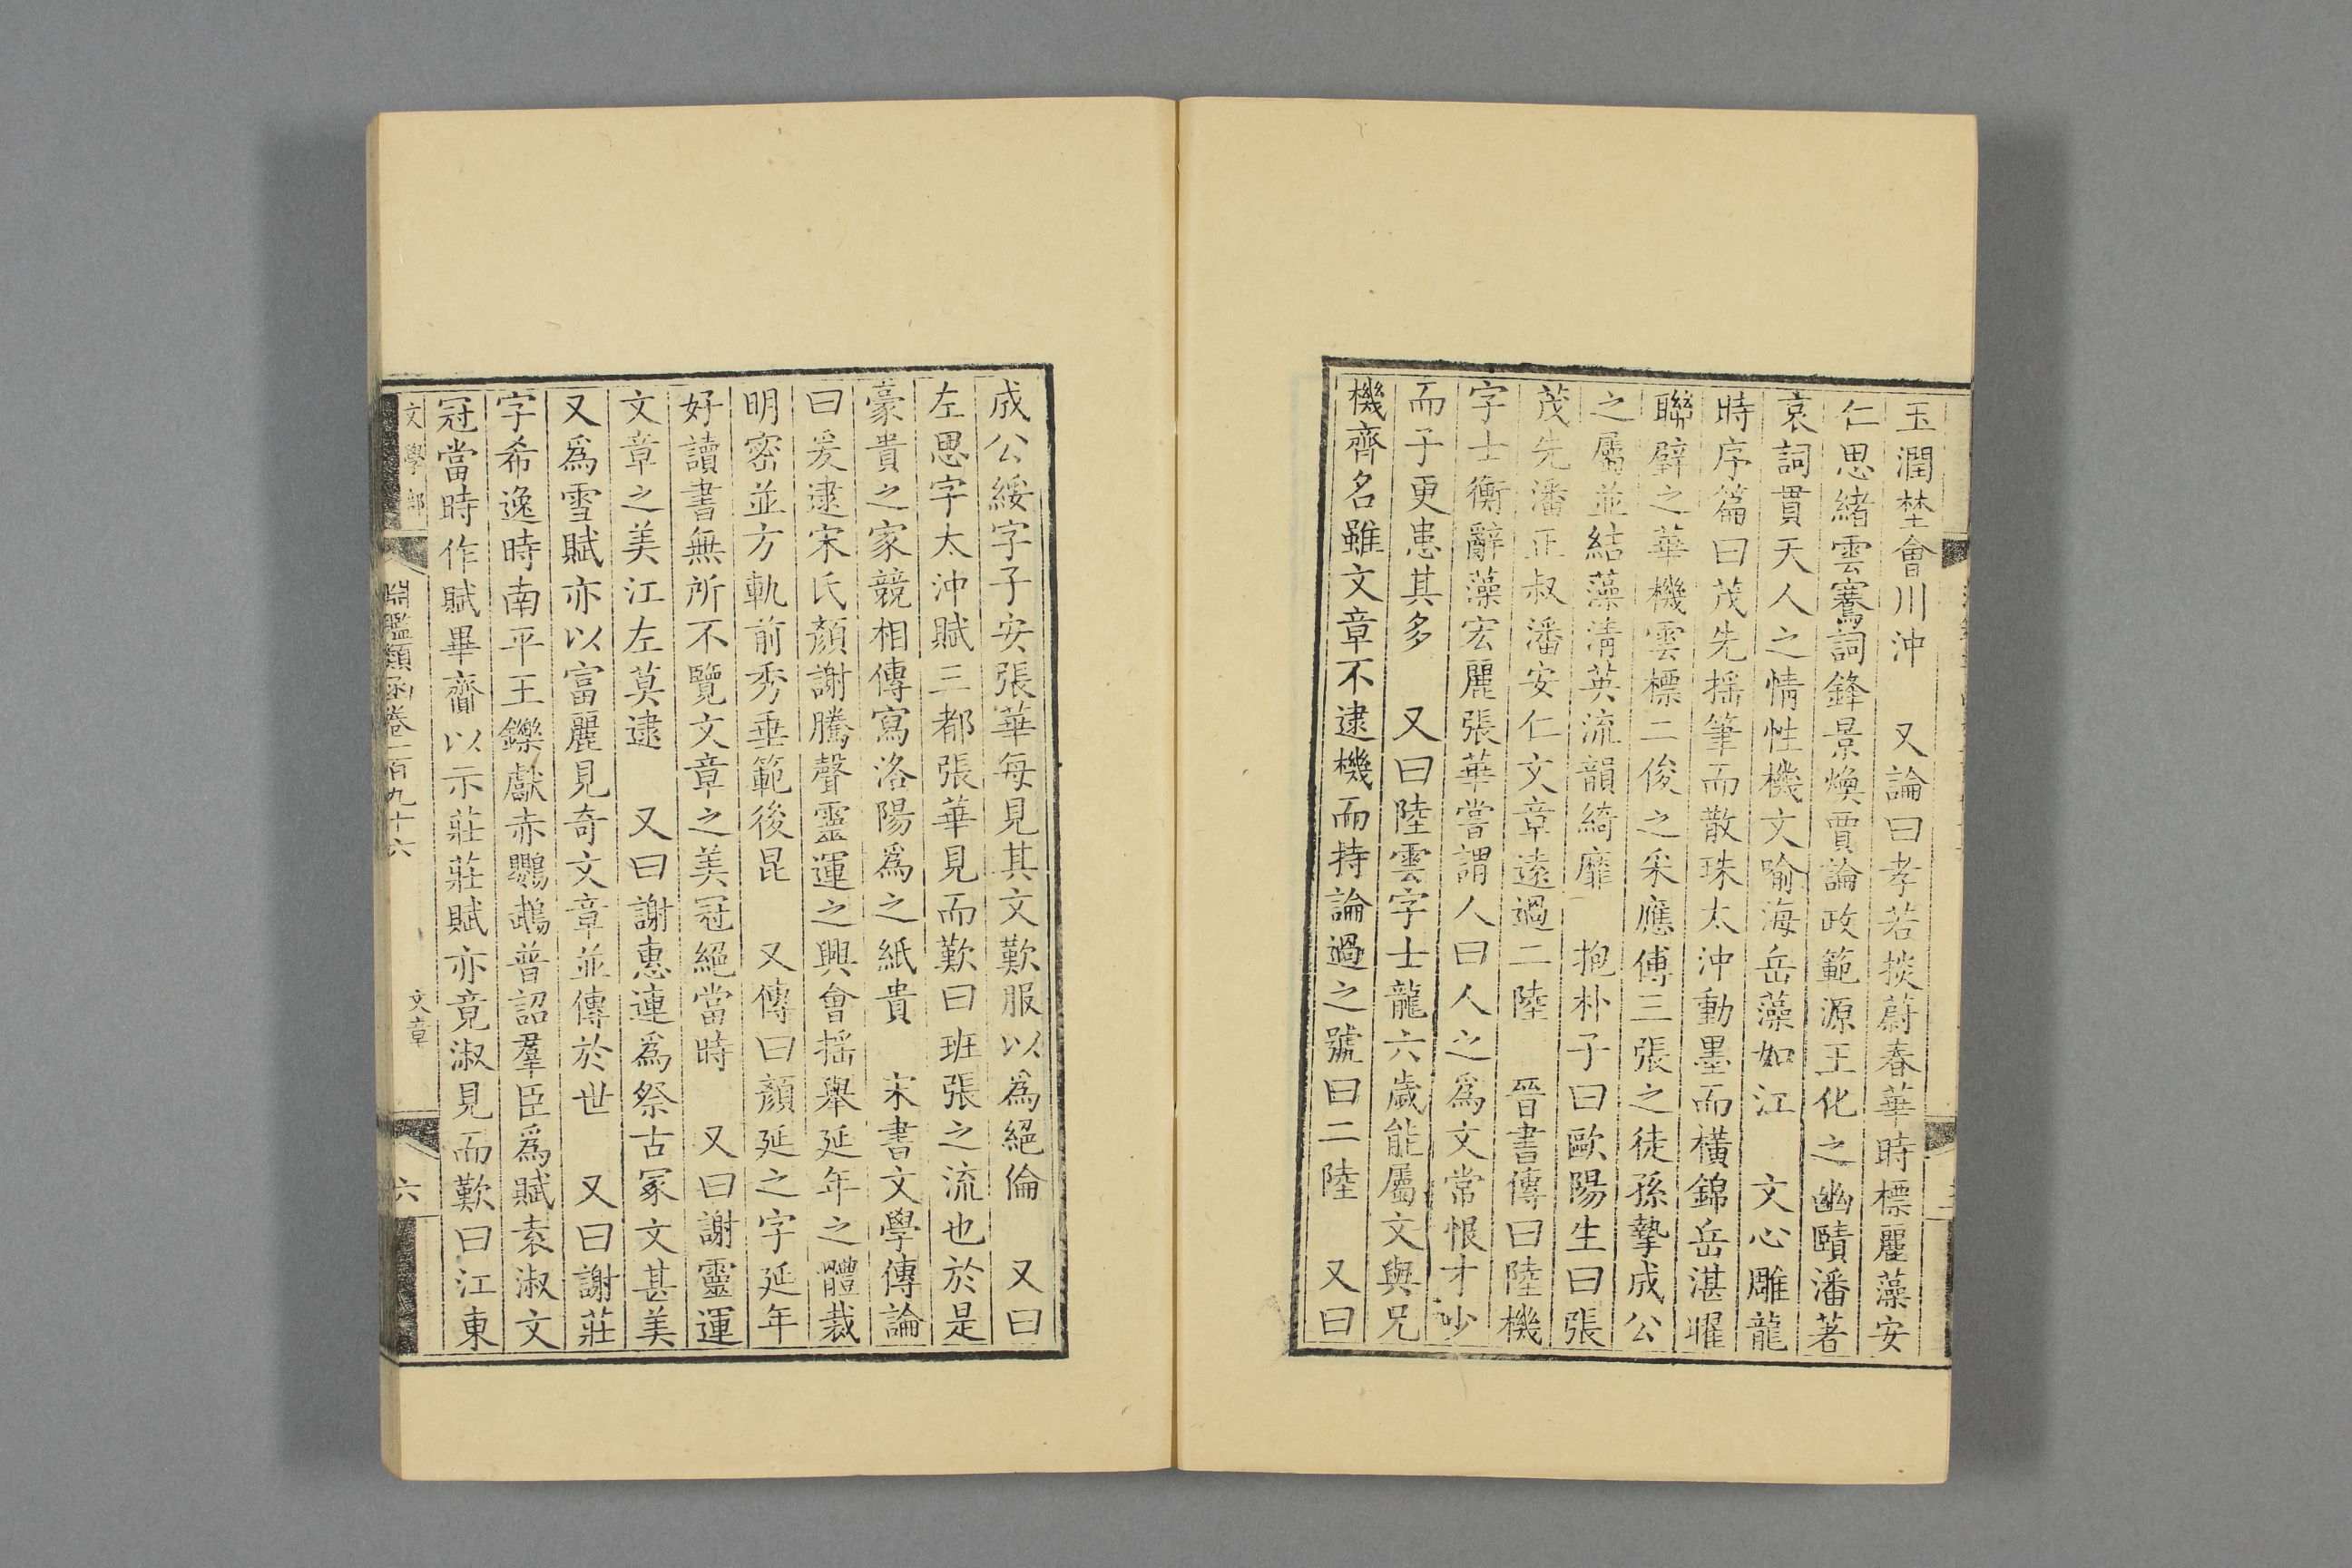 玉潤埜會川沖　又論曰孝若掞蔚春華時標麗藻安
仁思緒雲騫詞鋒景煥賈論政範源王化之幽賾潘著
哀詞貫天人之情性機文喻海岳藻如江　文心雕龍
時序篇曰茂先揺筆而散珠太沖動墨而橫錦岳湛曜
聯璧之華機雲標二俊之采應傅三張之徒孫摯成公
之屬並結藻清英流韻綺靡　抱朴子曰歐陽生曰張
茂先潘正叔潘安仁文章遠過二陸　晉書傳曰陸機
字士衡辭藻宏麗張華嘗謂人曰人之爲文常恨才少
而子更患其多　又曰陸雲字士龍六歲能屬文與兄
機齊名雖文章不逮機而持論過之號曰二陸　又曰
成公綏字子安張華每見其文歎服以爲絕倫　又曰
左思字太沖賦三都張華見而歎曰班張之流也於是
豪貴之家競相傳寫洛陽爲之紙貴　宋書文學傳論
曰爰逮宋氏顏謝騰聲靈運之興會揺舉延年之體裁
明密並方軌前秀垂範後昆　又傳曰顏延之字延年
好讀書無所不覽文章之美冠絕當時　又曰謝靈運
文章之美江左莫逮　又曰謝惠連爲祭古冢文甚美
又爲雪賦亦以富麗見奇文章並傳於世　又曰謝莊
字希逸時南平王鑠獻赤鸚鵡普詔羣臣爲賦袁淑文
冠當時作賦畢齎以示莊莊賦亦竟淑見而歎曰江東
文學部　淵鑑類函卷一百九十六　文章　六